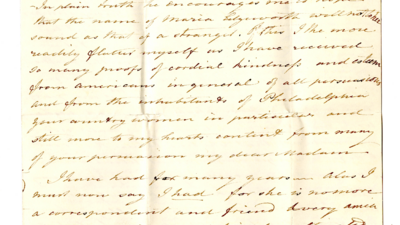 In plain truth he encourages me to hope
that the name of Maria Edgeworth will not there
sound as that of a stranger. Of this I the more
readily flatter myself as I have received
so many proofs of cordial kindness and esteem
from Americans in general of all persuasions
and from the inhabitants of Philadelphia
your country women in particular and
still more to my hearts content from many
of your persuasion my dear Madam
I have had for many years - alas I
must now say I had for she is no more
a correspondent and friend every